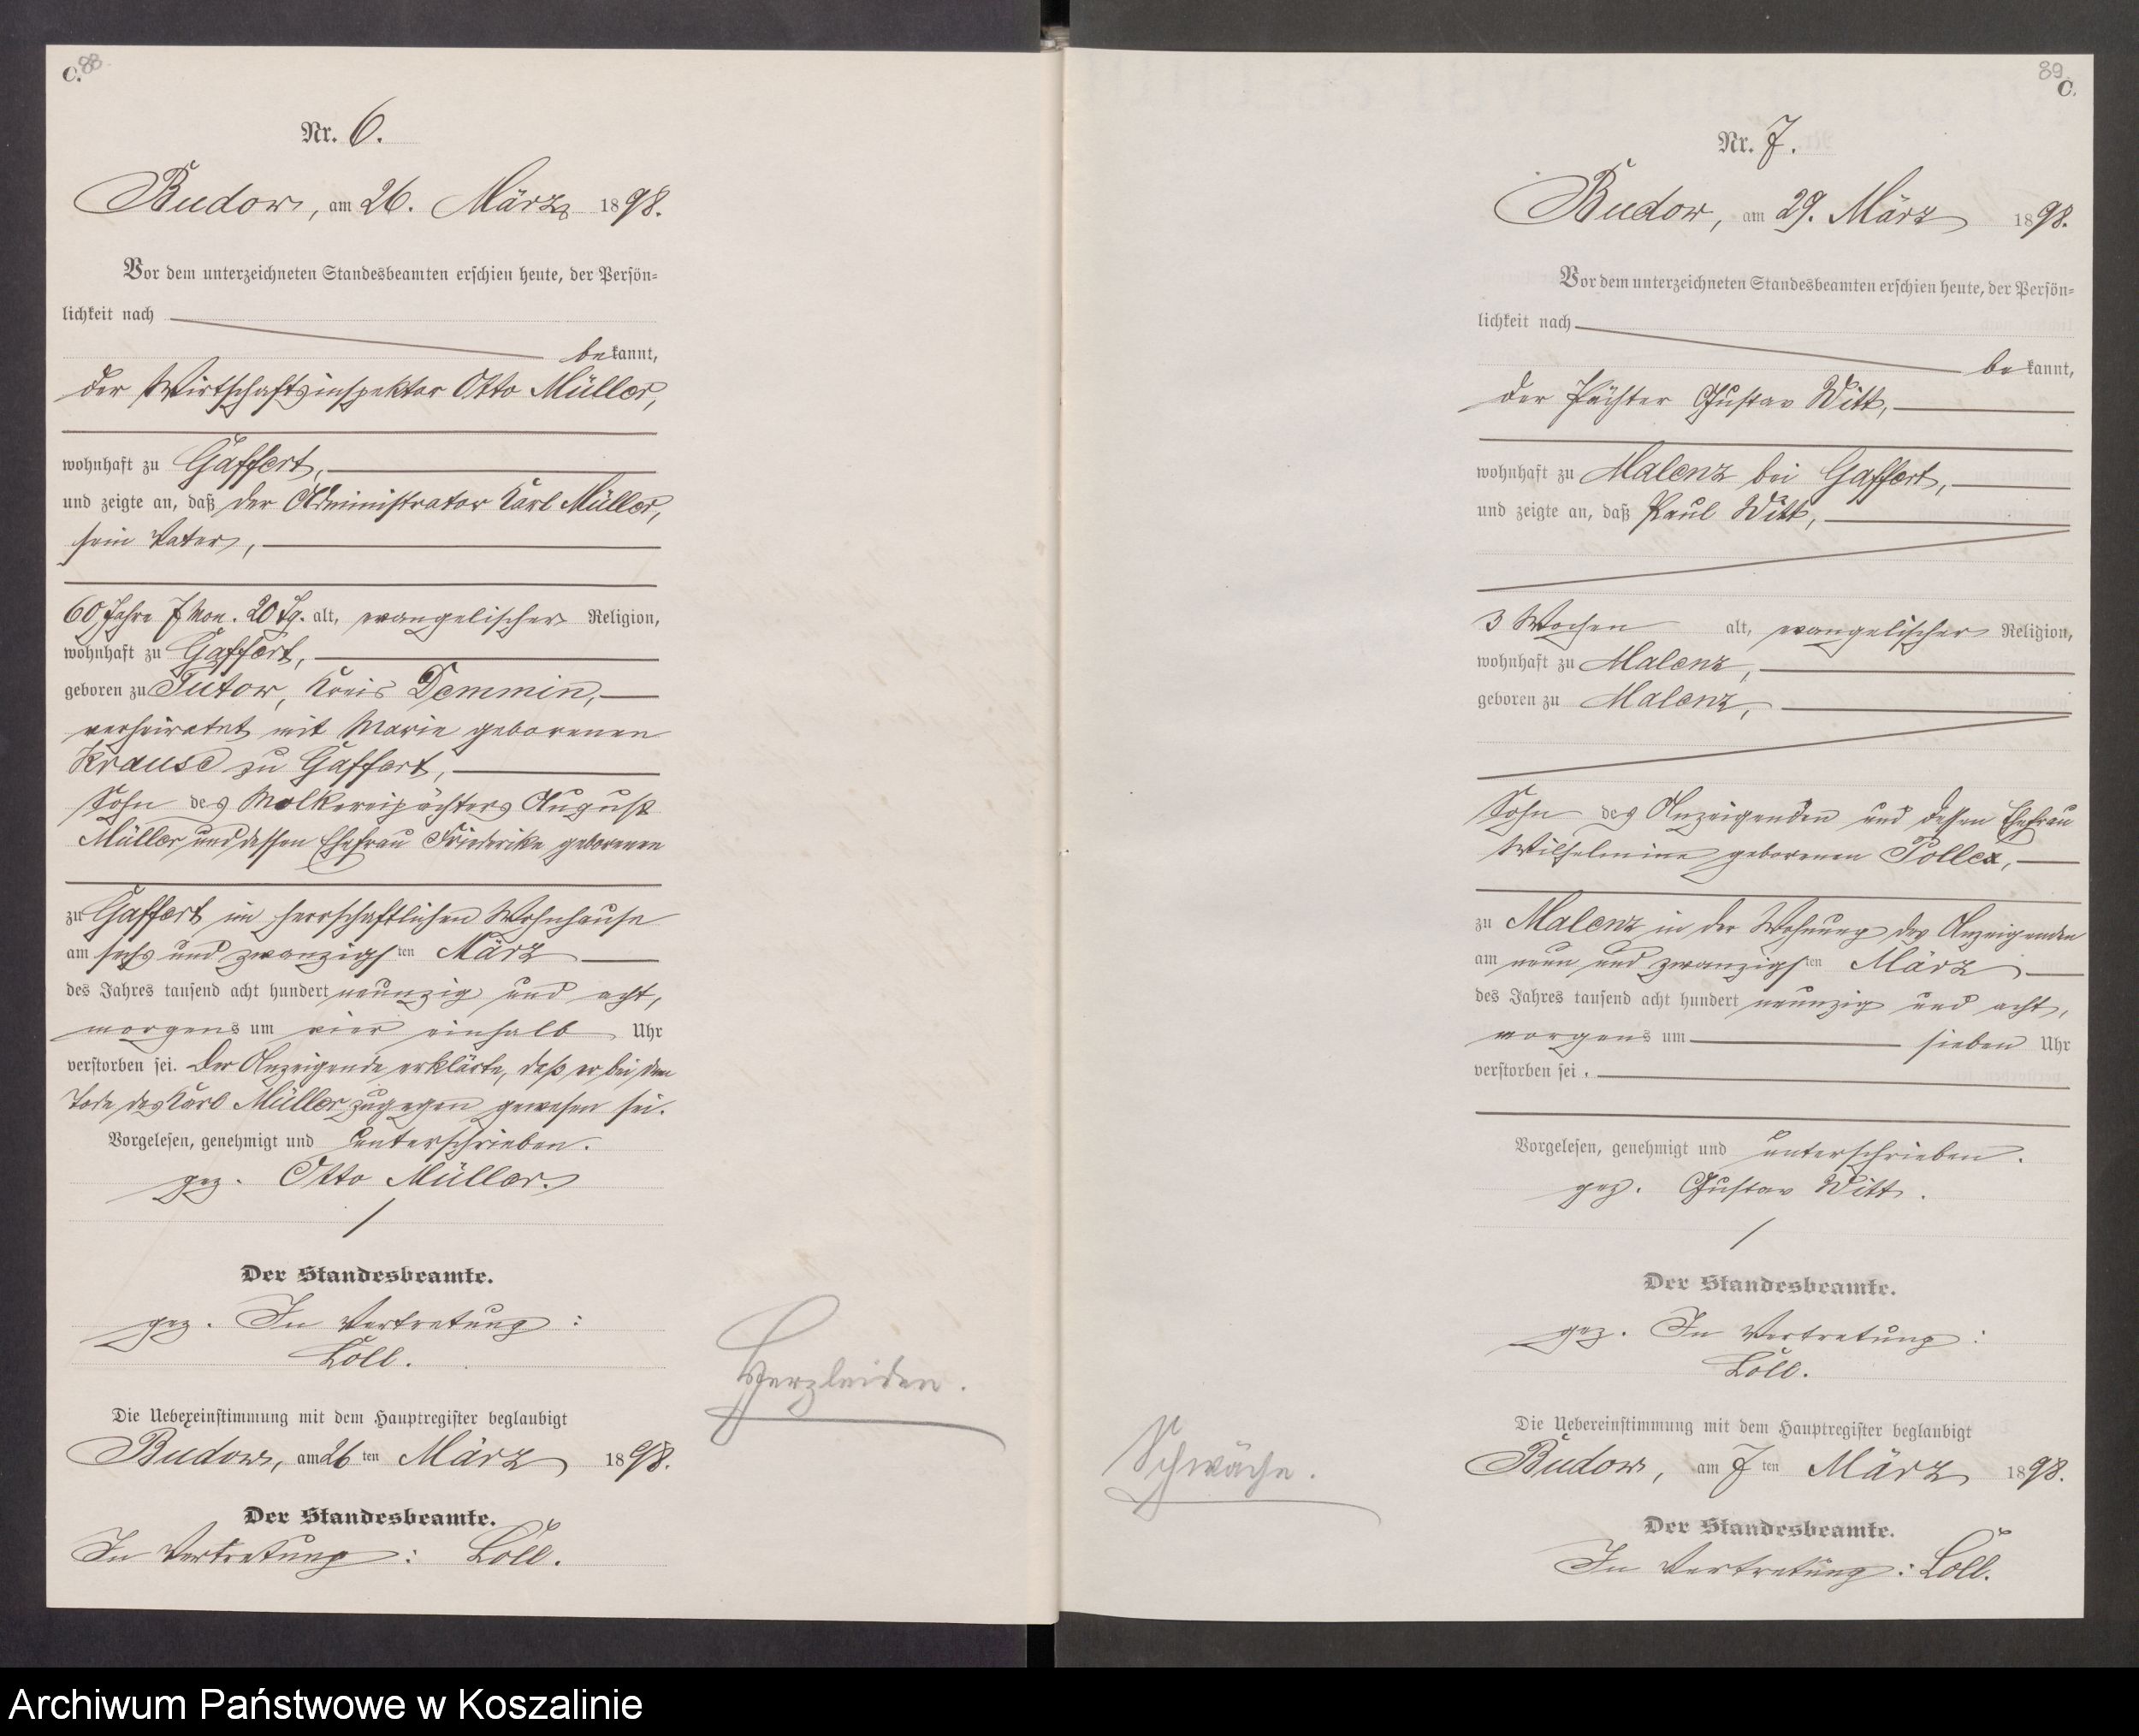 C. 88
Nr. 6.
Budow, am 26. März 1898.
Vor dem unterzeichneten Standesbeamten erschien heute, der Persön=
lichkeit nach
bekannt,
der Wirtschaftsinspektor Otto Müller,
wohnhaft zu Gaffert,
und zeigte an, daß der Administrator Karl Müller,
sein Vater,
60 Jahre 7 Mon. 20 Tg. alt, evangelischer Religion,
wohnhaft zu Gaffert,
geboren zu Tutow, Kreis Demmin,
verheiratet mit Marie geborenen
Krause zu Gaffert,
Sohn des Molkereipächters August
Müller und dessen Ehefrau Friederike geborenen
zu Gaffert im herrschaftlichen Wohnhause
am sechs und zwanzigsten März
des Jahres tausend acht hundert neunzig und acht,
morgens um vier einhalb Uhr
verstorben sei. Der Anzeigende erklärte, daß er bei dem
Tode des Karl Müller zugegen gewesen sei.
Vorgelesen, genehmigt und unterschrieben.
gez. Otto Müller.
Der Standesbeamte.
gez. In Vertretung:
Löll.
Herzleiden.
Die Uebereinstimmung mit dem Hauptregister beglaubigt
Budow, am 26ten März 1898.
Der Standesbeamte.
In Vertretung: Löll.
89 C.
Nr. 7.
Budow, am 29. März 1898.
Vor dem unterzeichneten Standesbeamten erschien heute, der Persön=
lichkeit nach
bekannt,
der Pächter Gustav Witt,
wohnhaft zu Malenz bei Gaffert,
und zeigte an, daß Paul Witt,
3 Wochen alt, evangelischer Religion,
wohnhaft zu Malenz,
geboren zu Malenz,
Sohn des Anzeigenden und dessen Ehefrau
Wilhelmine geborenen Pollex,
zu Malenz in der Wohnung des Anzeigenden
am neun und zwanzigsten März
des Jahres tausend acht hundert neunzig und acht,
morgens um sieben Uhr
verstorben sei.
Vorgelesen, genehmigt und unterschrieben.
gez. Gustav Witt.
Der Standesbeamte.
gez. In Vertretung:
Löll.
Schwäche.
Die Uebereinstimmung mit dem Hauptregister beglaubigt
Budow, am 7ten März 1898.
Der Standesbeamte.
In Vertretung: Löll.
Archiwum Państwowe w Koszalinie